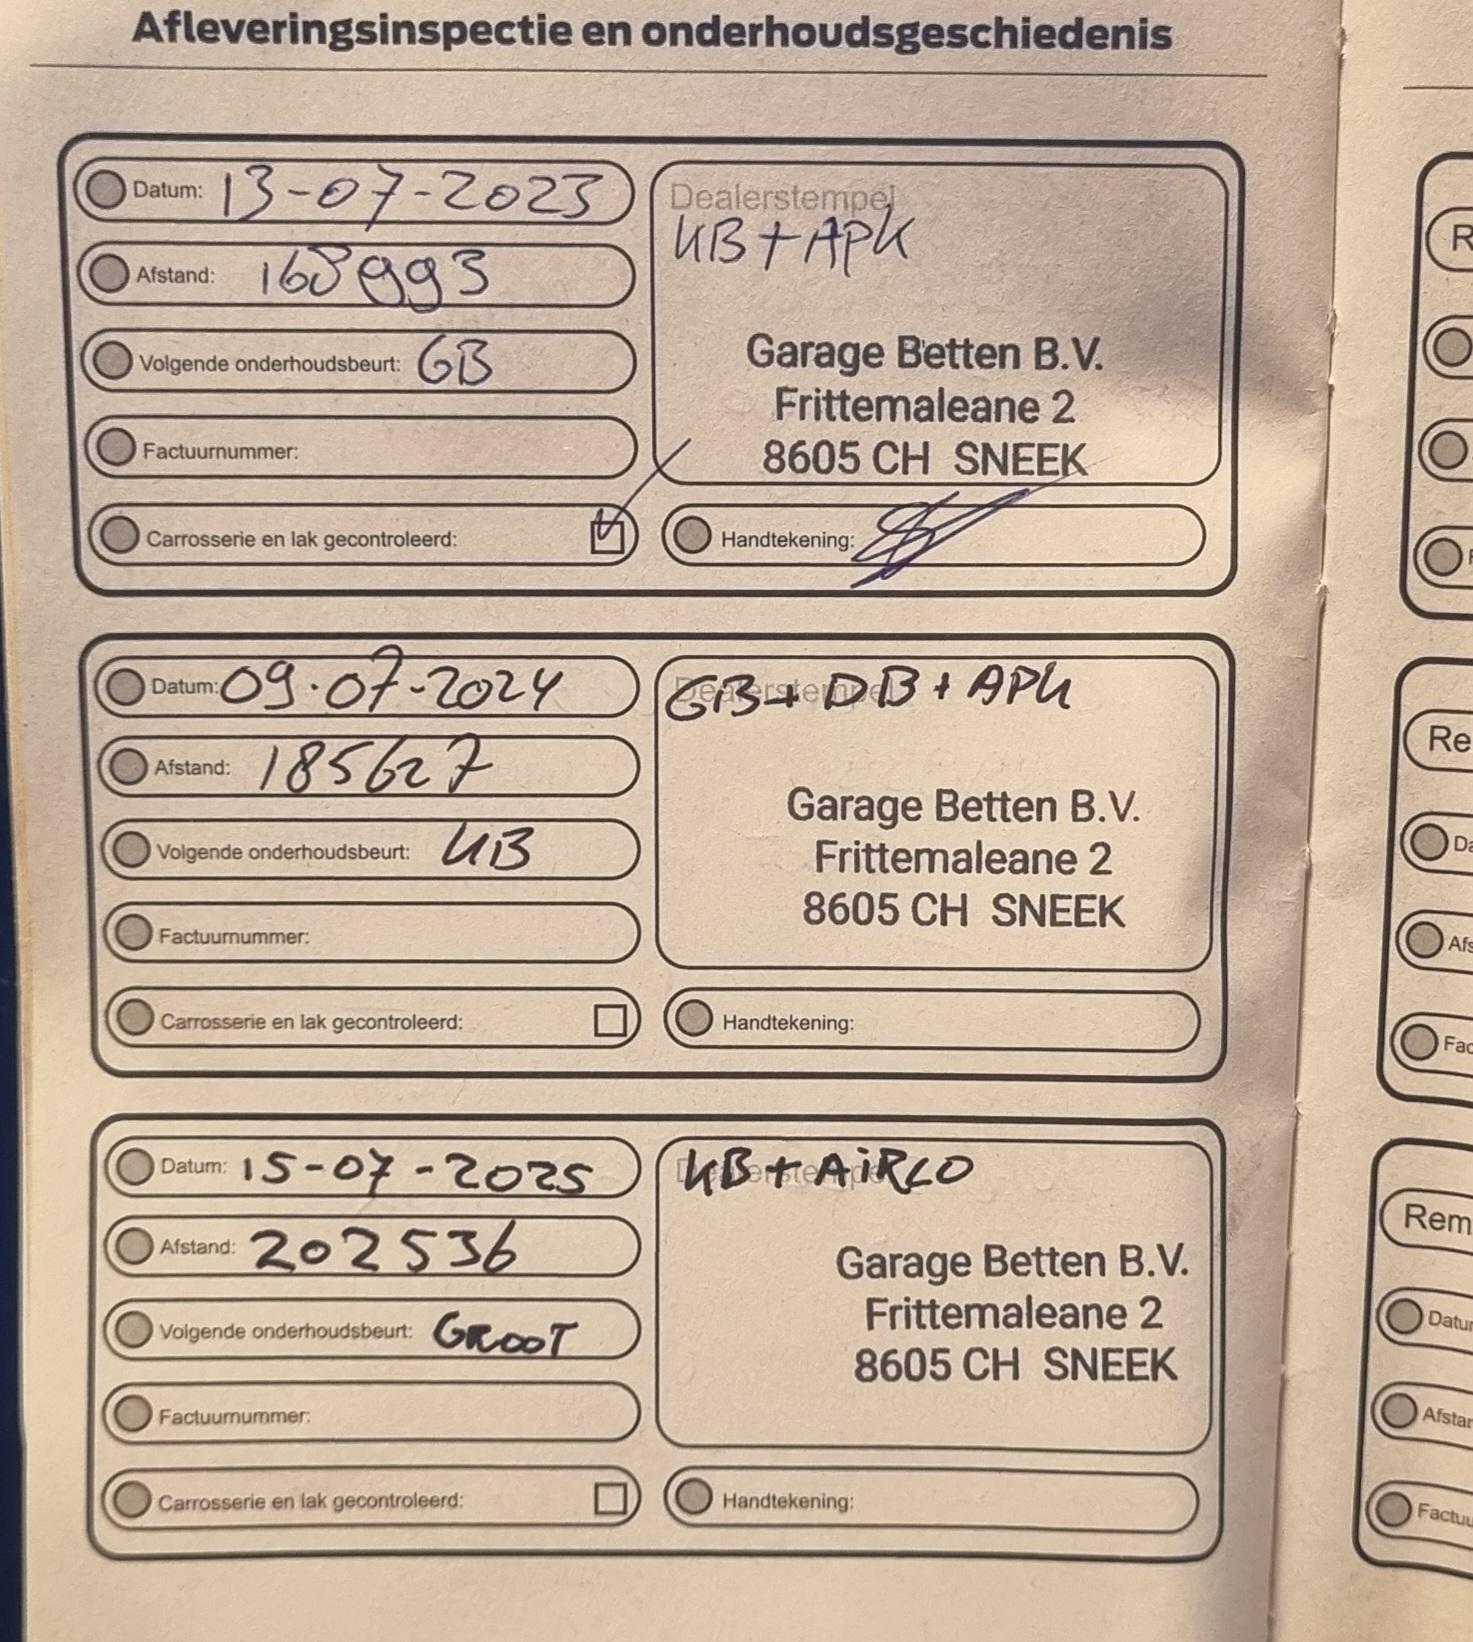 Afleveringsinspectie en onderhoudsgeschiedenis
Datum: 13-07-2023
Afstand: 168993
Volgende onderhoudsbeurt: GB
Factuurnummer:
Carrosserie en lak gecontroleerd:
Dealerstempel
KB + APK
Garage Betten B.V.
Frittemaleane 2
8605 CH SNEEK
Handtekening:
Datum: 09-07-2024
Afstand: 185627
Volgende onderhoudsbeurt: KB
Factuurnummer:
Carrosserie en lak gecontroleerd:
Dealerstempel
GB + DB + APK
Garage Betten B.V.
Frittemaleane 2
8605 CH SNEEK
Handtekening:
Datum: 15-07-2025
Afstand: 202536
Volgende onderhoudsbeurt: GROOT
Factuurnummer:
Carrosserie en lak gecontroleerd:
Dealerstempel
KB + AiRCO
Garage Betten B.V.
Frittemaleane 2
8605 CH SNEEK
Handtekening:
R
Re
Da
Afs
Fac
Rem
Datu
Afsta
Factu